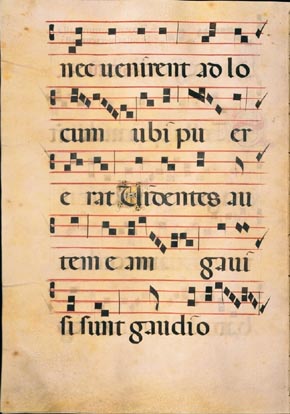 nec uenirent ad lo
cum ubi pu er
e rat Uidentes au
tem e am gaui
si sunt gaudio